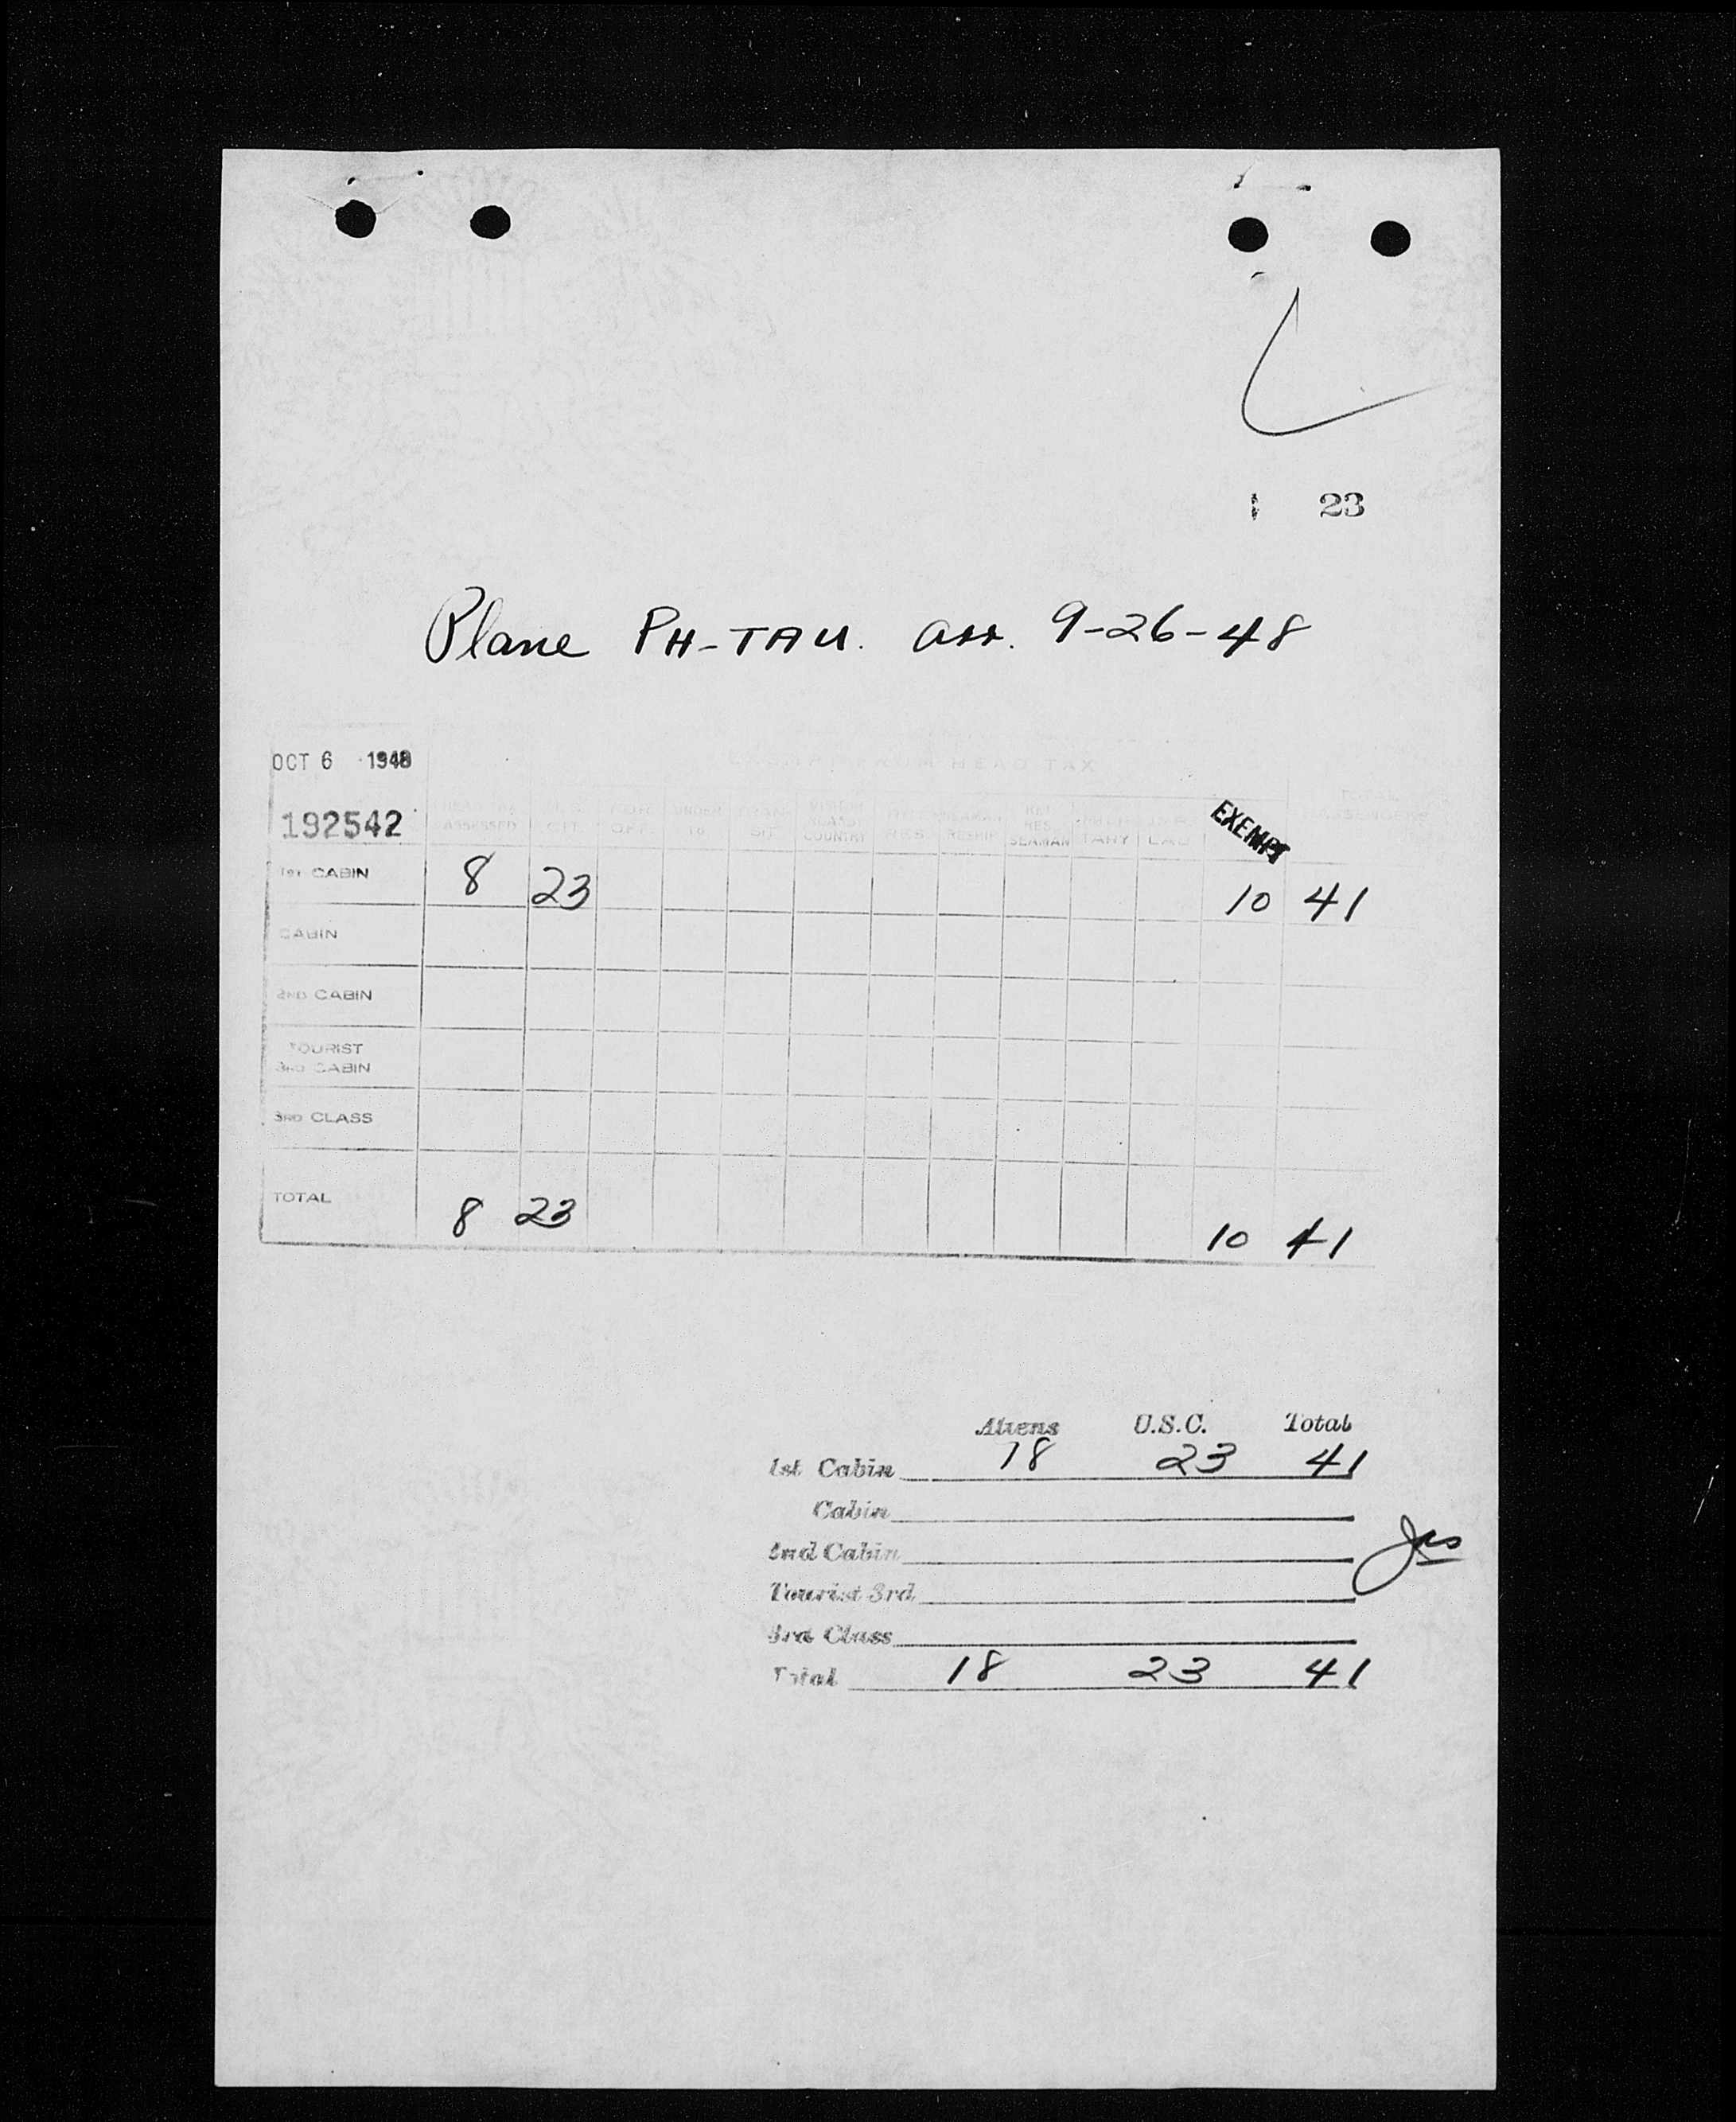 23
Plane PH-TAU. arr. 9-26-48
OCT 6 1948
HEAD TAX
192542
ASSESSED CIT UNDER 16 COUNTRY SEAMAN EXEMPT
1ST CABIN 8 23 10 41
CABIN
2ND CABIN
TOURIST
3RD CABIN
3RD CLASS
TOTAL 8 23 10 41
Aliens U.S.C. Total
1st Cabin 18 23 41
Cabin
2nd Cabin
Tourist 3rd
3rd Class
Total 18 23 41